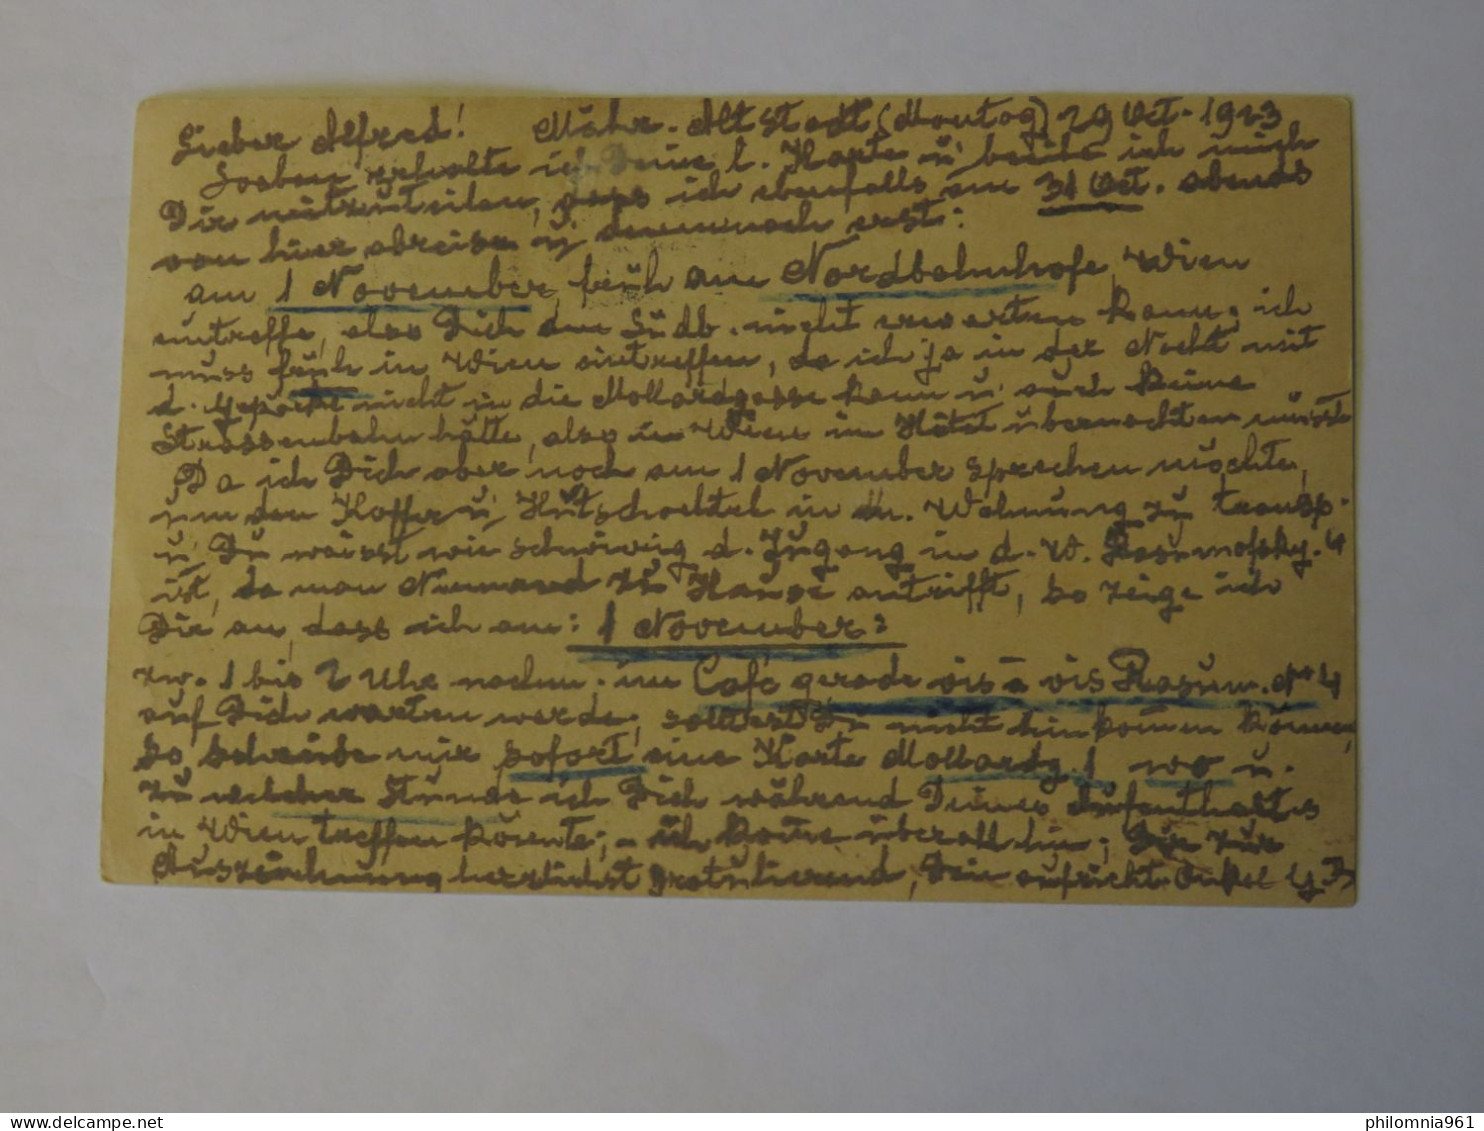 Lieber Alfred! Mähr. Altstadt (Montag) 29 Oct. 1923
Soeben erhalte ich Deine l. Karte u beeile ich mich
Dir mitzuteilen, dass ich ebenfalls am 31 Oct. abends
von hier abreise u demnach erst:
am 1 November früh am Nordbahnhofe Wien
eintreffe, also Dich am Südb. nicht erwarten kann; ich
muss früh in Wien eintreffen, da ich ja in der Nacht mit
d. Gepäcke nicht in die Mollardgasse kann u auch keine
Strassenbahn hätte, also in Wien im Hôtel übernachten müsst
Da ich Dich aber noch am 1 November sprechen möchte,
um den Koffer u Hutschachtel in dn. Wohnung zu transp.
u Du weisst wie schwierig d. Zugang in d. W. Rasumofsky. 4
ist, da man Niemand zu Hause antrifft, so zeige ich
Dir an, dass ich am: 1 November:
zw. 1 bis 2 Uhr nachm. im Café gerade vis à vis Rasum. No 4
auf Dich warten werde, solltest Du nicht hinkommen können,
so schreibe mir sofort eine Karte Mollardg. 1 wo u.
zu welcher Stunde ich Dich während Deines Aufenthaltes
in Wien treffen könnte; – ich komme überall hin; Dir zur
Auszeichnung herzlichst gratulierend, Dein aufricht. Onkel
philomnia961